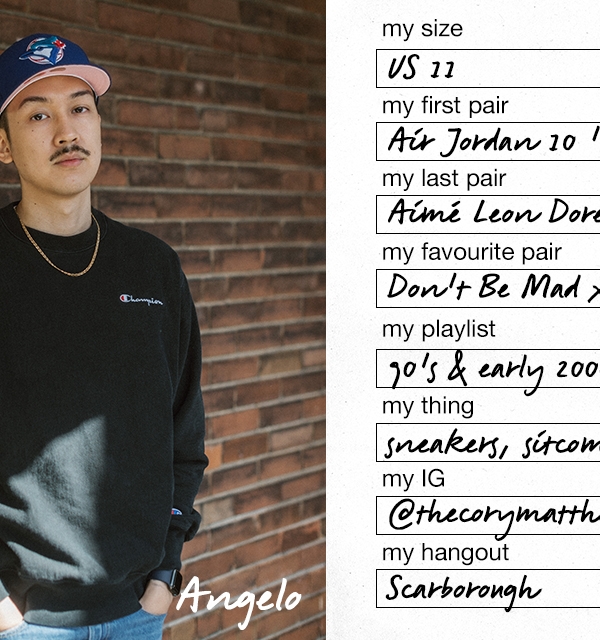 Champion
Angelo
my size
US 11
my first pair
Air Jordan 10 '
my last pair
Aimé Leon Dore
my favourite pair
Don't Be Mad
my playlist
90's & early 200
my thing
sneakers, sitcom
my IG
@thecorymatth
my hangout
Scarborough